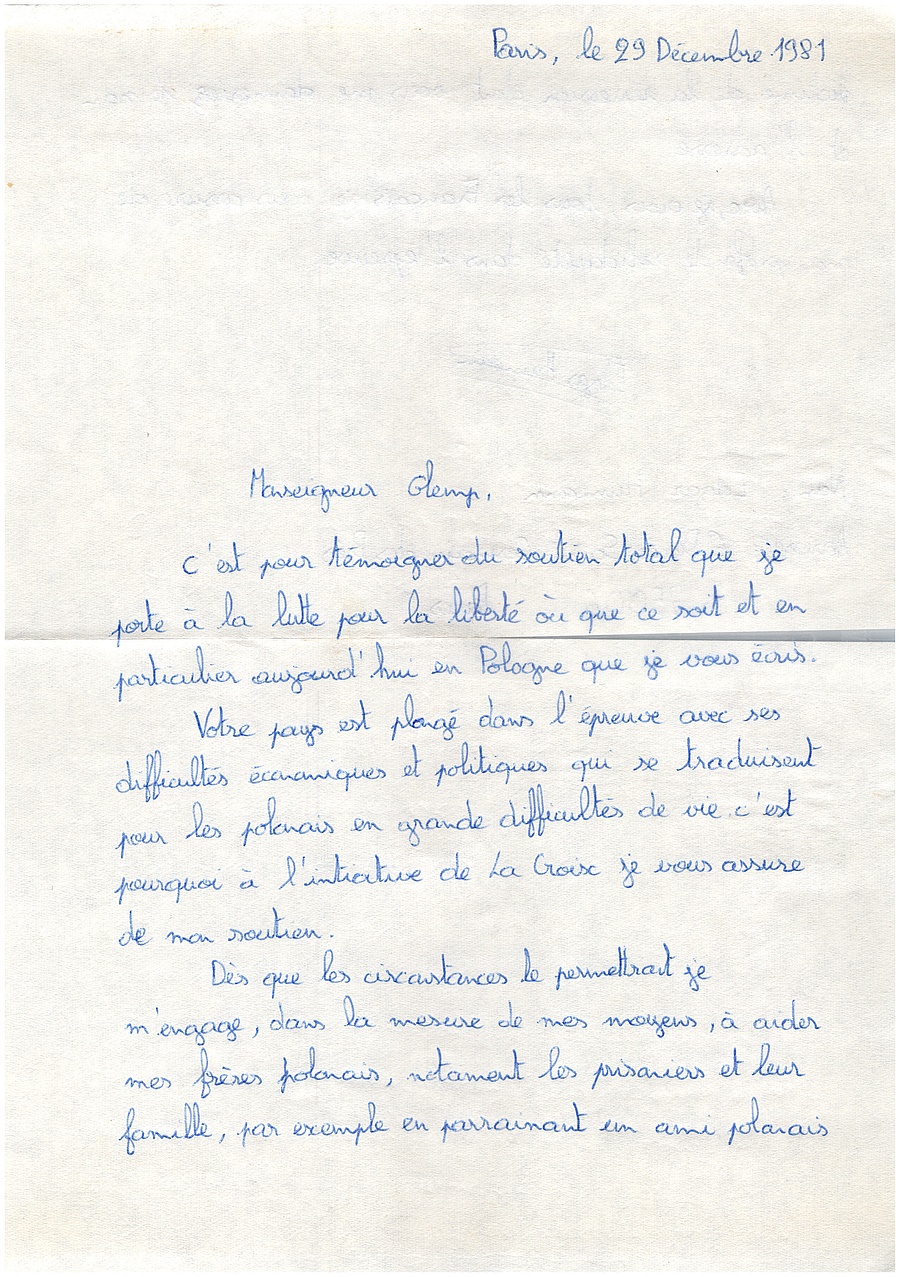 Paris, le 29 Décembre 1981
Monseigneur Glemp,
C'est pour témoigner du soutien total que je
porte à la lutte pour la liberté où que ce soit et en
particulier aujourd'hui en Pologne que je vous écris.
Votre pays est plongé dans l'épreuve avec ses
difficultés économiques et politiques qui se traduisent
pour les polonais en grande difficultés de vie. c'est
pourquoi à l'intiative de La Croix je vous assure
de mon soutien.
Dès que les circonstances le permettrait je
m'engage, dans la mesure de mes moyens, à aider
mes frères polonais, notament les prisoniers et leur
famille, par exemple en parrainant un ami polonais